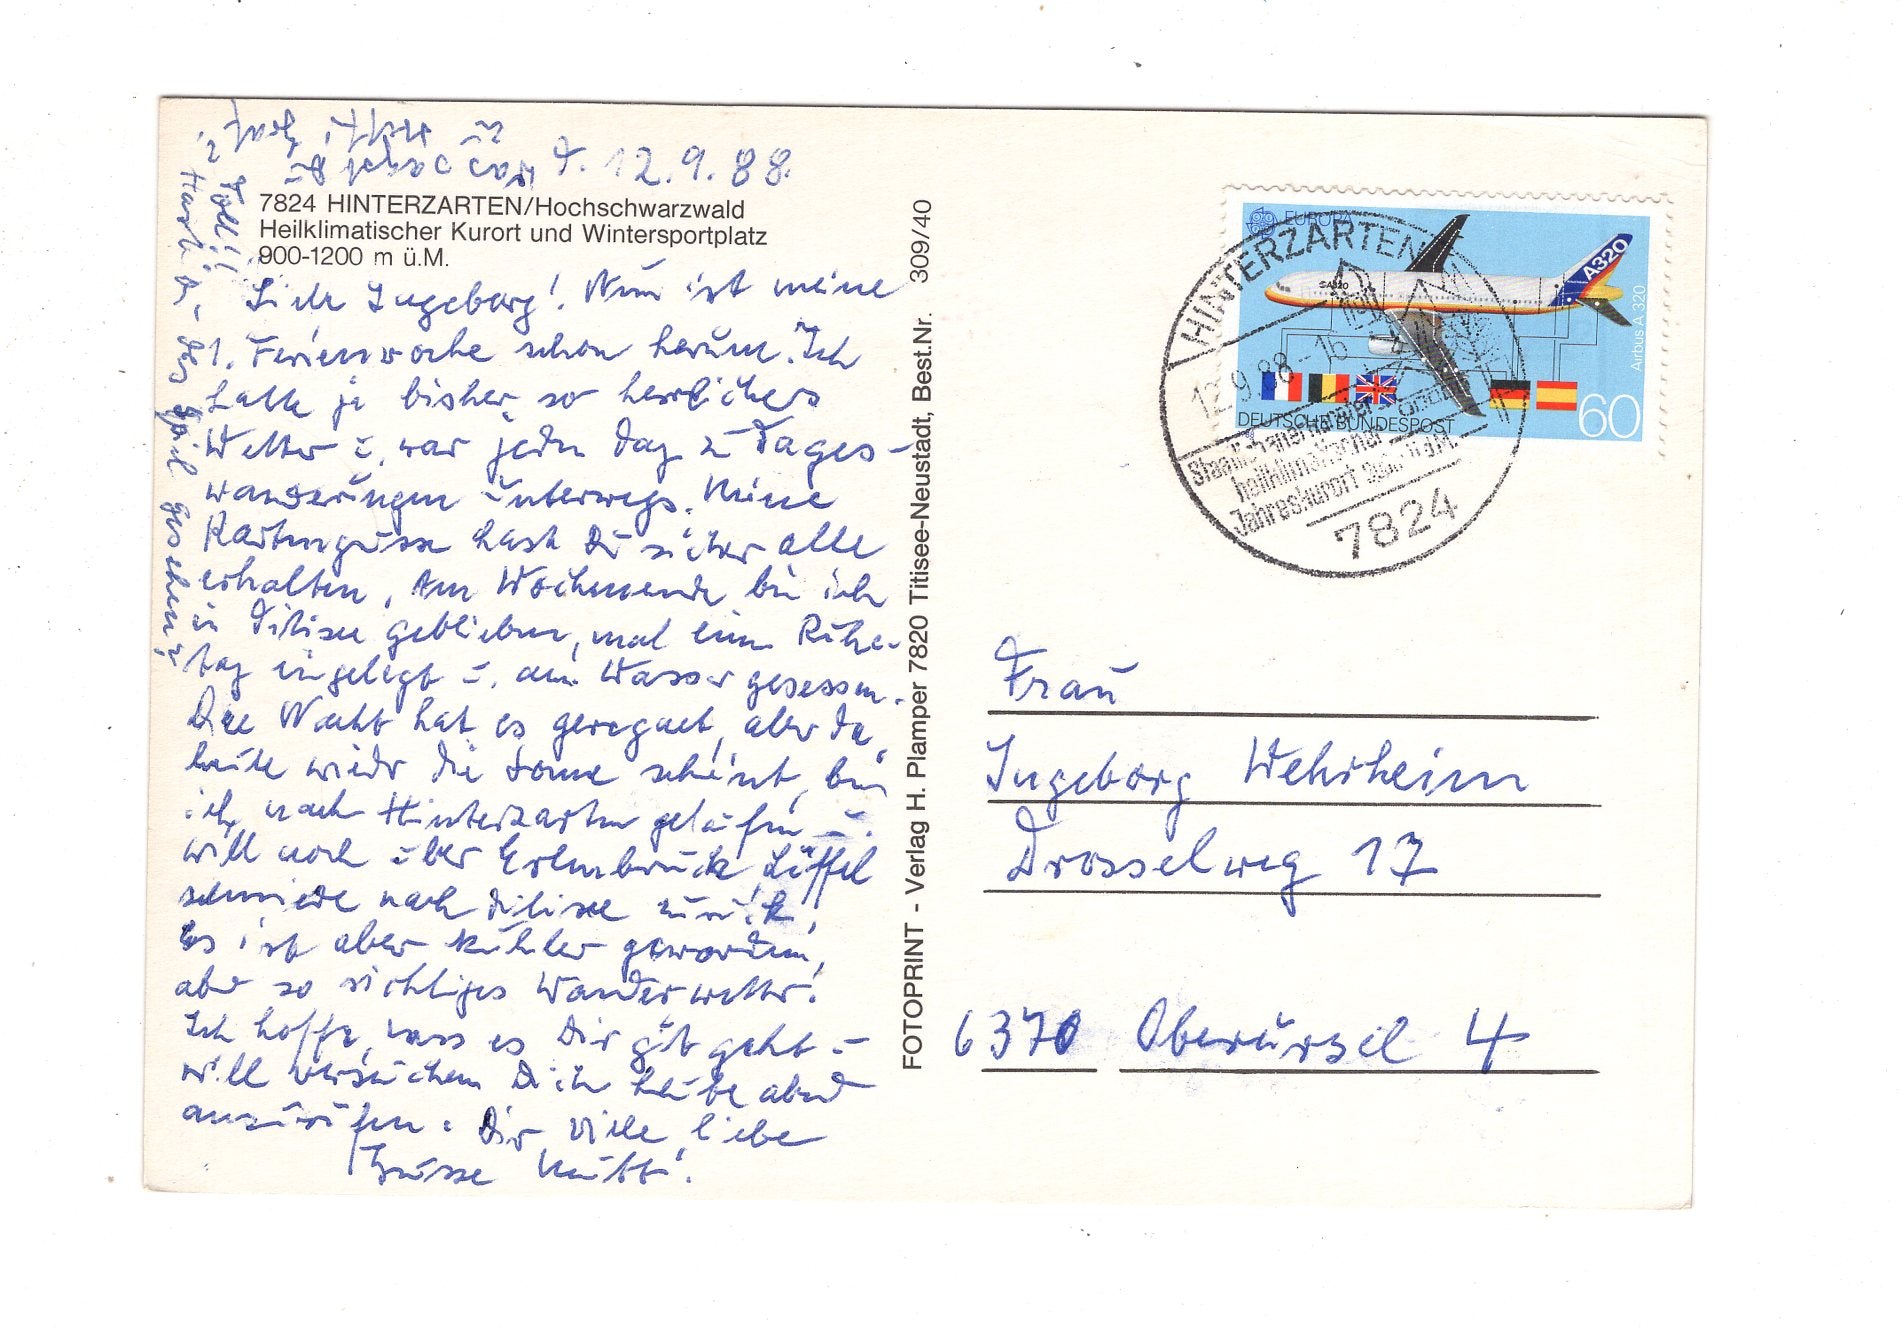 12.9.88.
7824 HINTERZARTEN/Hochschwarzwald
Heilklimatischer Kurort und Wintersportplatz
900-1200 m ü.M.
Liebe Ingeborg! Nun ist meine
1. Ferienwoche schon herum. Ich
hatte ja bisher so herrliches
Wetter u. war jeden Tag zu Tages-
wanderungen unterwegs. Meine
Kartengrüsse hast Du sicher alle
erhalten. Am Wochenende bin ich
in Titisee geblieben, mal einen Ruhe-
tag eingelegt u. am Wasser gesessen.
Die Nacht hat es geregnet, aber da
heute wieder die Sonne scheint, bin
ich nach Hinterzarten gelaufen u.
will noch über Erlenbruck, Löffel
schmiede nach Titisee zurück.
Es ist aber kühler geworden,
aber so richtiges Wanderwetter!
Ich hoffe, dass es Dir gut geht u
will versuchen Dich heute abend
anzurufen. Dir viele liebe
Grüsse
Hast Du das Spiel gesehen?
Toll!!
FOTOPRINT - Verlag H. Plamper 7820 Titisee-Neustadt, Best.Nr. 309/40
EUROPA
A320
A320
Airbus A 320
DEUTSCHE BUNDESPOST
60
HINTERZARTEN
12.9.88-16
Staatl. anerkannter
heilklimatischer
Jahreskurort
7824
Frau
Ingeborg Wehrheim
Drosselweg 17
6370 Oberursel 4